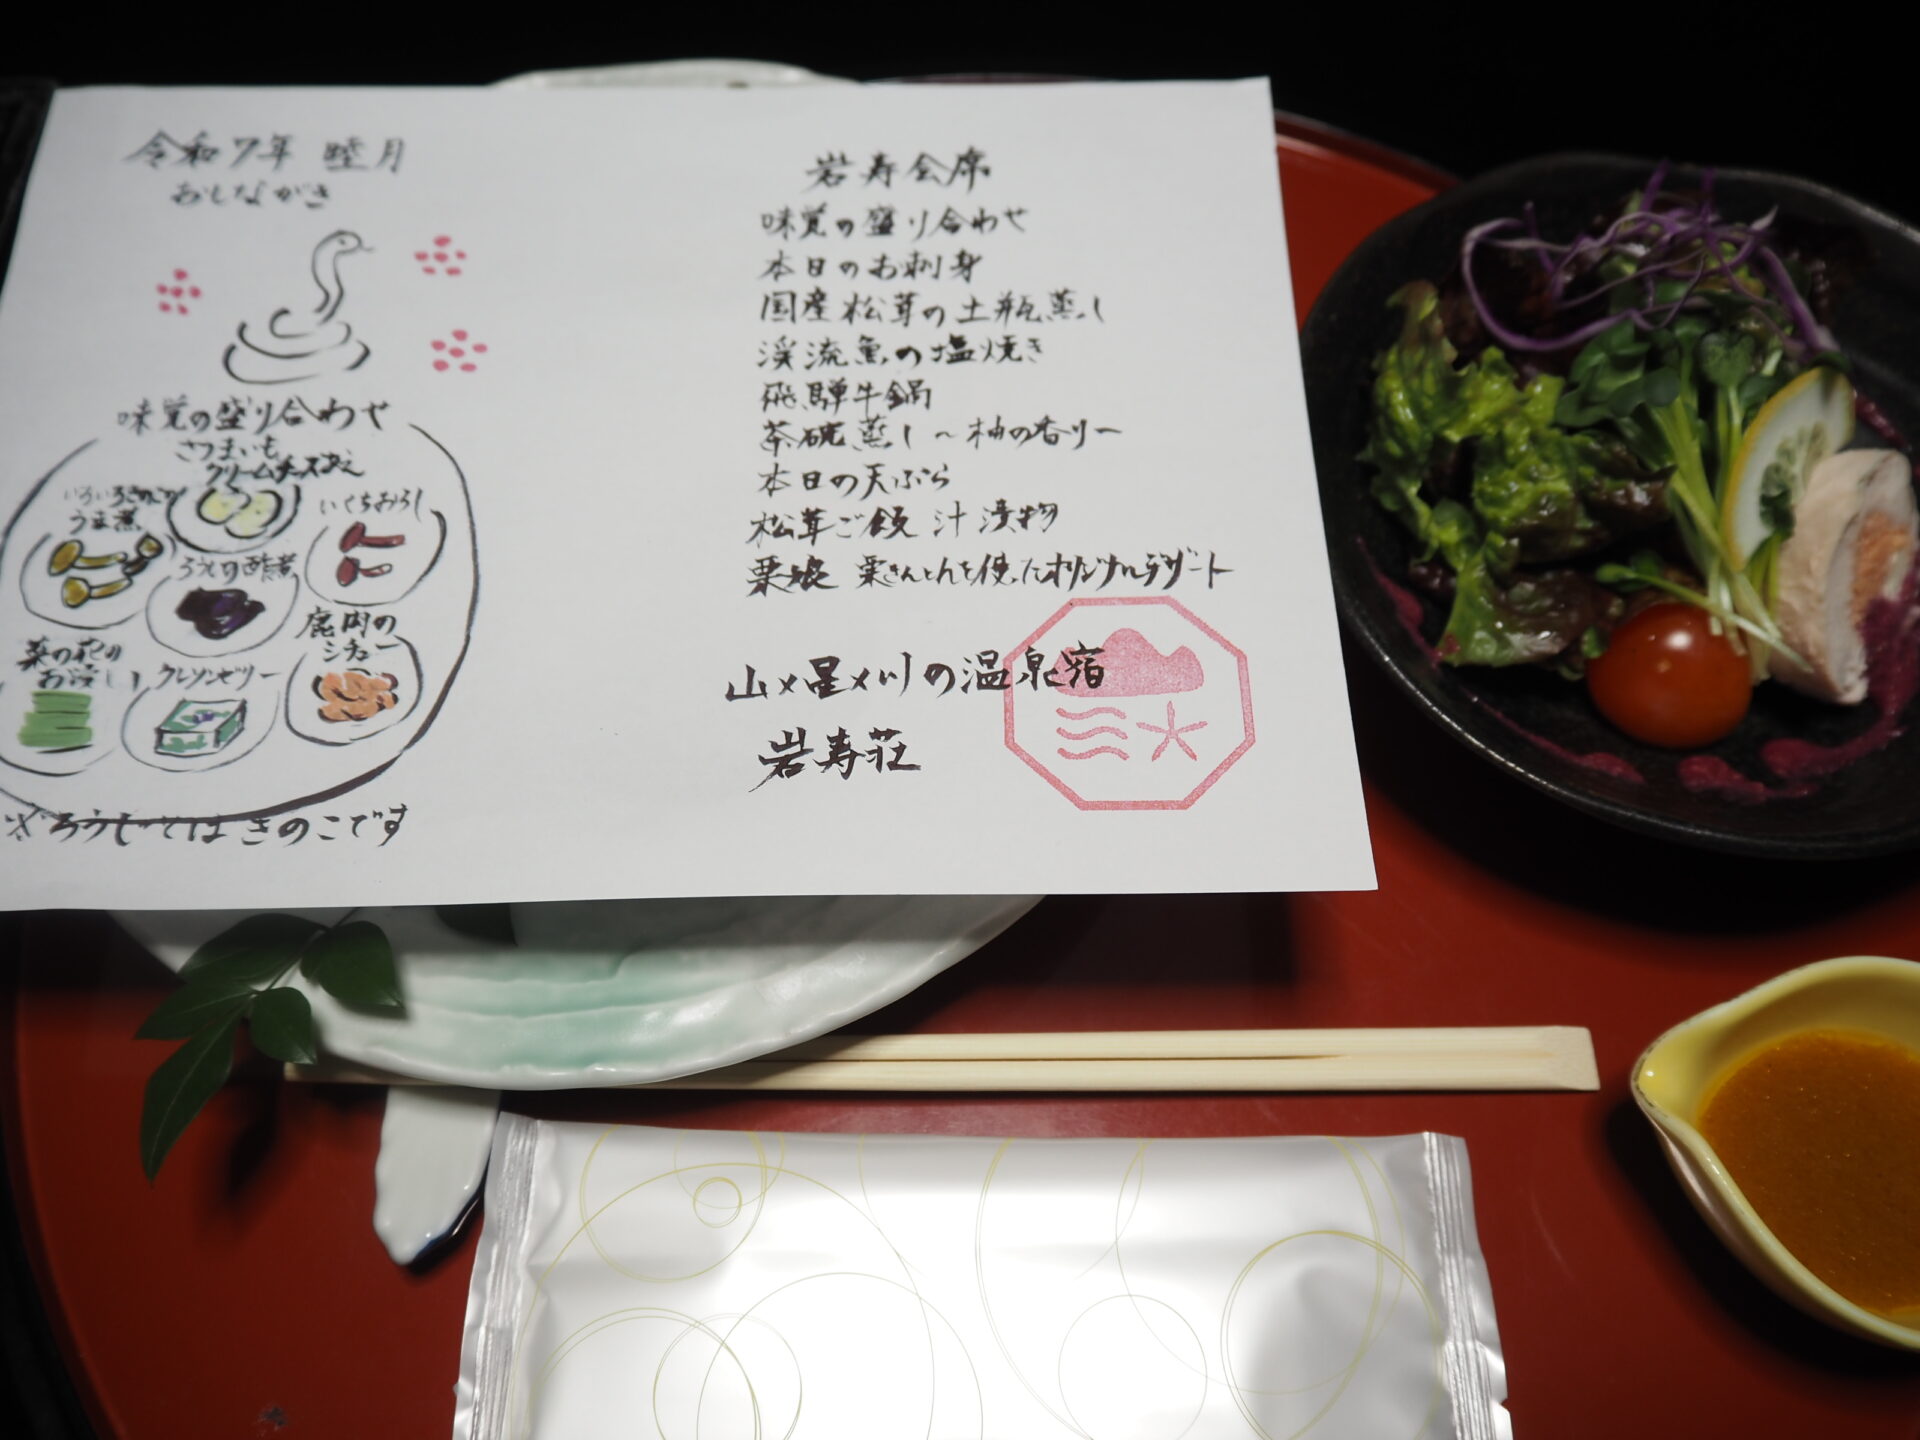 令和7年 睦月
おしながき
味覚の盛り合わせ
さつまいも
クリームチーズあえ
いろいろきのこの
うま煮
いくちおろし
ろうじの酢煮
鹿肉の
シチュー
菜の花の
お浸し
クレソンゼリー
※ろうじとはきのこです
岩寿会席
味覚の盛り合わせ
本日のお刺身
国産松茸の土瓶蒸し
渓流魚の塩焼き
飛騨牛鍋
茶碗蒸し～柚の香り～
本日の天ぷら
松茸ご飯 汁 漬物
栗娘 栗きんとんを使ったオリジナルデザート
山×星×川の温泉宿
岩寿荘